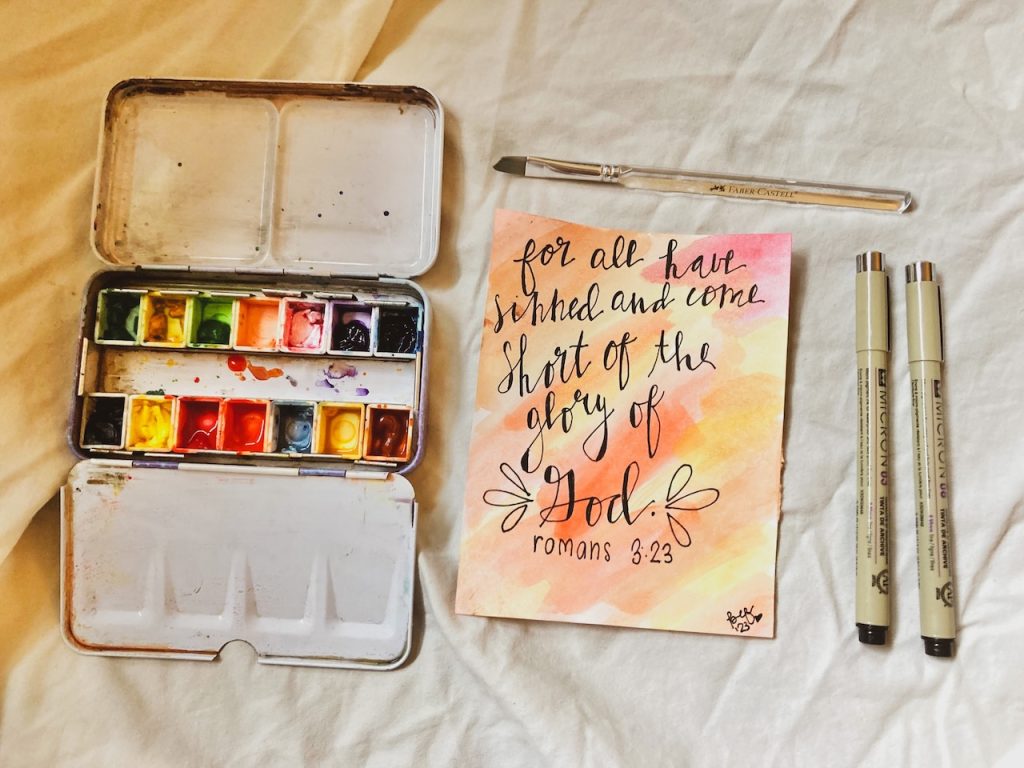 FABER-CASTELL
for all have
sinned and come
short of the
glory of
God.
romans 3:23
'23
MICRON 03
TINTA DE ARCHIVE
MICRON 08
TINTA DE ARCHIVE